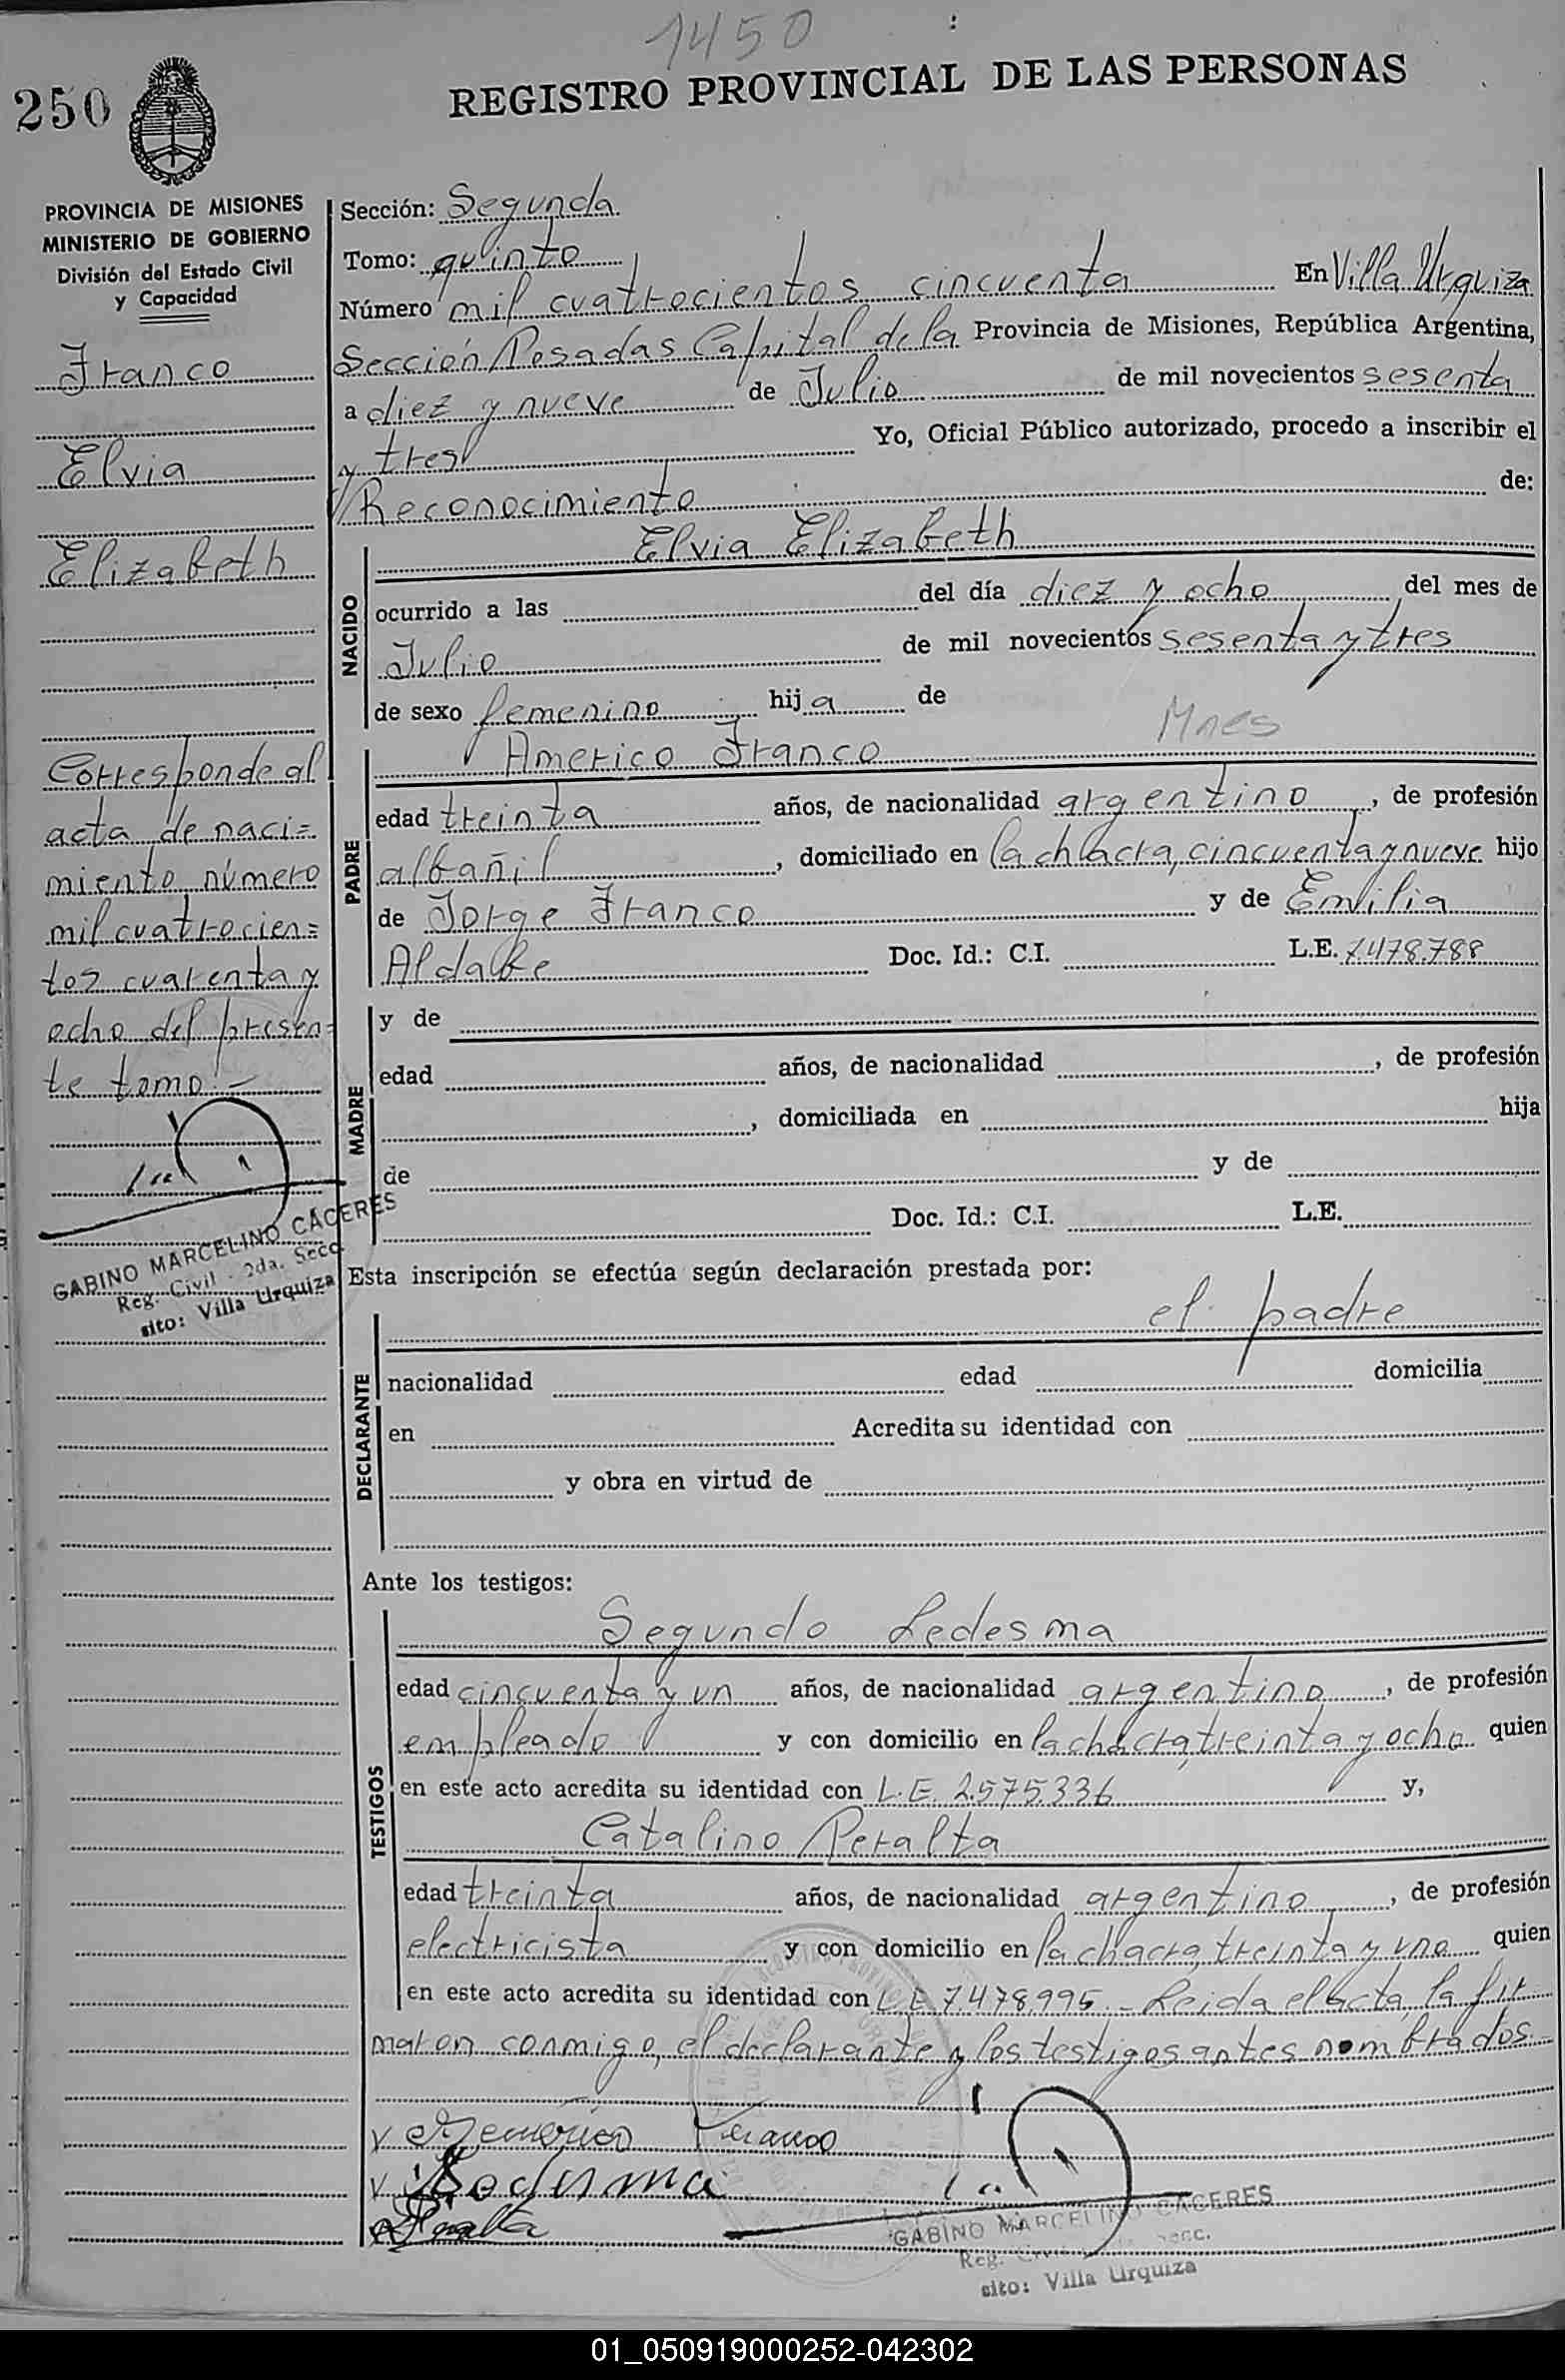 1450
250
REGISTRO PROVINCIAL DE LAS PERSONAS
PROVINCIA DE MISIONES
MINISTERIO DE GOBIERNO
División del Estado Civil
y Capacidad
Franco
Elvia
Elizabeth
Corresponde al
acta de naci=
miento número
mil cuatrocien=
tos cuarenta y
ocho del presen=
te tomo.-
GABINO MARCELINO CACERES
Reg. Civil - 2da. Secc.
sito: Villa Urquiza
Sección: Segunda
Tomo: quinto
Número mil cuatrocientos cincuenta En Villa Urquiza
Sección Posadas Capital de la Provincia de Misiones, República Argentina,
a diez y nueve de Julio de mil novecientos sesenta
y tres Yo, Oficial Público autorizado, procedo a inscribir el
Reconocimiento de:
NACIDO
Elvia Elizabeth
ocurrido a las del día diez y ocho del mes de
Julio de mil novecientos sesenta y tres
de sexo femenino hija de
Mnes
PADRE
Americo Franco
edad treinta años, de nacionalidad argentino, de profesión
albañil, domiciliado en la chacra, cincuenta y nueve hijo
de Jorge Franco y de Emilia
Aldabe Doc. Id.: C.I. L.E. 7.478.788
MADRE
y de
edad años, de nacionalidad , de profesión
, domiciliada en hija
de y de
Doc. Id.: C.I. L.E.
Esta inscripción se efectúa según declaración prestada por:
DECLARANTE
el padre
nacionalidad edad domicilia
en Acredita su identidad con
y obra en virtud de
Ante los testigos:
TESTIGOS
Segundo Ledesma
edad cincuenta y un años, de nacionalidad argentino, de profesión
empleado y con domicilio en la chacra, treinta y ocho quien
en este acto acredita su identidad con L.E. 2.575.336 y,
Catalino Peralta
edad treinta años, de nacionalidad argentino, de profesión
electricista y con domicilio en la chacra, treinta y uno quien
en este acto acredita su identidad con L.E. 7.478.995 - Leida el acta, la fir
maron conmigo, el declarante y los testigos antes nombrados.
Americo Franco
Ledesma
Peralta
GABINO MARCELINO CACERES
Reg. Civil Secc.
sito: Villa Urquiza
01_050919000252-042302